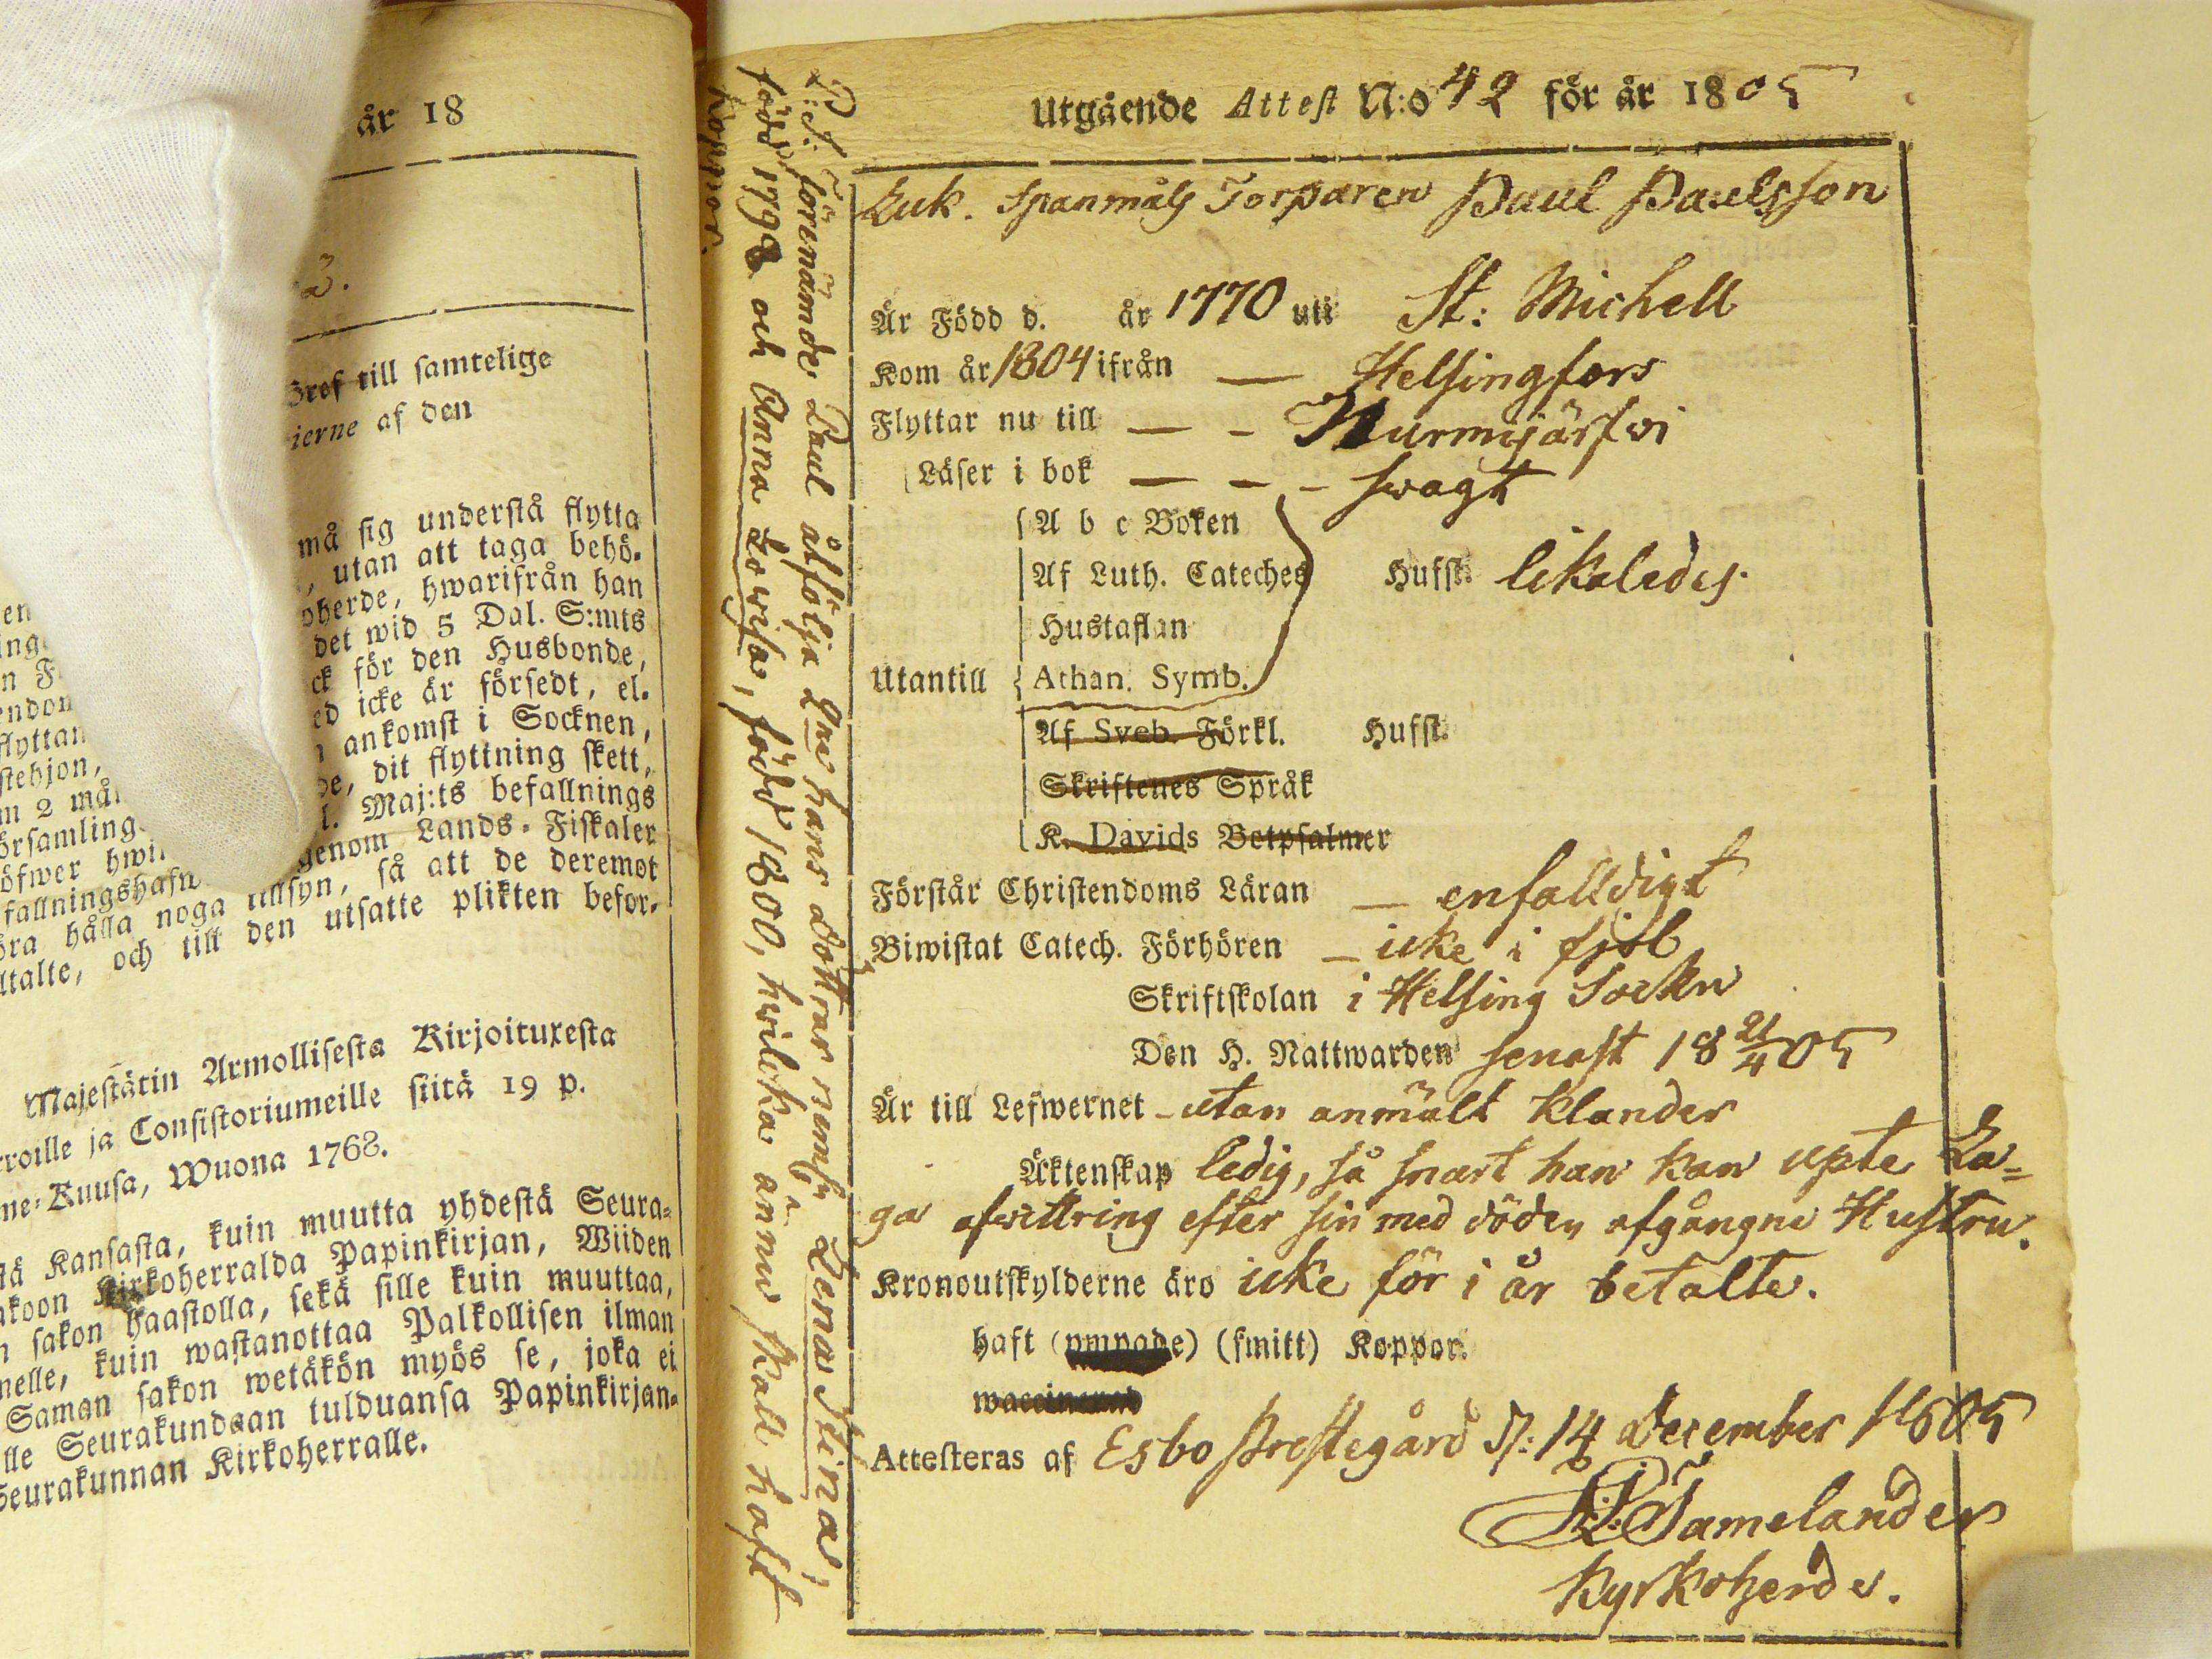 år 18
a.
Bref till samtelige
ierne af den
må sig understå flytta
, utan att taga behö-
oherde, hwarifrån han
det wid 5 Dal. S:mts
ck för den Husbonde,
ed icke är försedt, el-
ankomst i Socknen,
de, dit flyttning skett,
l. Maj:ts befallnings
genom Lands-Fiskaler
fallningshafw tillsyn, så att de deremot
öra hålla noga
ltalte, och till den utsatte plikten befor-
Majestätin Armollisesta Kirjoituxesta
rroille ja Consistoriumeille siitä 19 p.
ne-Kuusa, Wuona 1768.
tä Kansasta, kuin muutta yhdestä Seura-
akoon Kirkoherralda Papinkirjan, Wiiden
n sakon haastolla, sekä sille kuin muuttaa,
nelle, kuin wastanottaa Palkollisen ilman
Saman sakon wetäkön myös se, joka ei
lle Seurakundaan tulduansa Papinkirjan-
Seurakunnan Kirkoherralle.
P.S. Förenämnde Paul åtfölja 2ne hans döttrar nemln Lena Stina,
född 1798 och Anna Lowisa, född 1800, hvilka ännu skall haft
koppor.
Utgående Attest N:o 42 för år 1805
Luk. Spanmåls Torparen Paul Paulsson
Är Född d. år 1770 uti St: Michell
Kom år 1804 ifrån — Helsingfors
Flyttar nu till — - Nurmijärfwi
Läser i bok — - - swagt
A b c Boken
Af Luth. Cateches Hufst. likaledes.
Hustaflan
Utantill Athan. Symb.
Af Sveb. Förkl. Hufst.
Skriftenes Språk
K. Davids Betpsalmer
Förstår Christendoms Läran — enfalldigt
Biwistat Catech. Förhören — icke i fjol
Skriftskolan i Helsing Sockn
Den H. Nattwarden senast 18 21/4 05
Är till Lefwernet - utan anmält klander
Äktenskap ledig, så snart han kan upte La=
ga afwittring efter sin med döden afgångne Hustru.
Kronoutskylderne äro icke för i år betalte.
haft (ympade) (smitt) Koppor.
waccinerad
Attesteras af Esbo Prestegård d: 14 December 1805
Tamelander
Kyrkoherde.